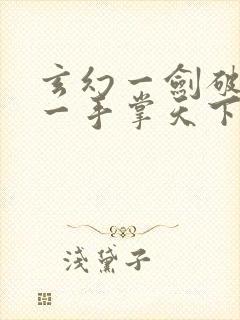 玄幻一劍破
一手掌天下
淺黛子